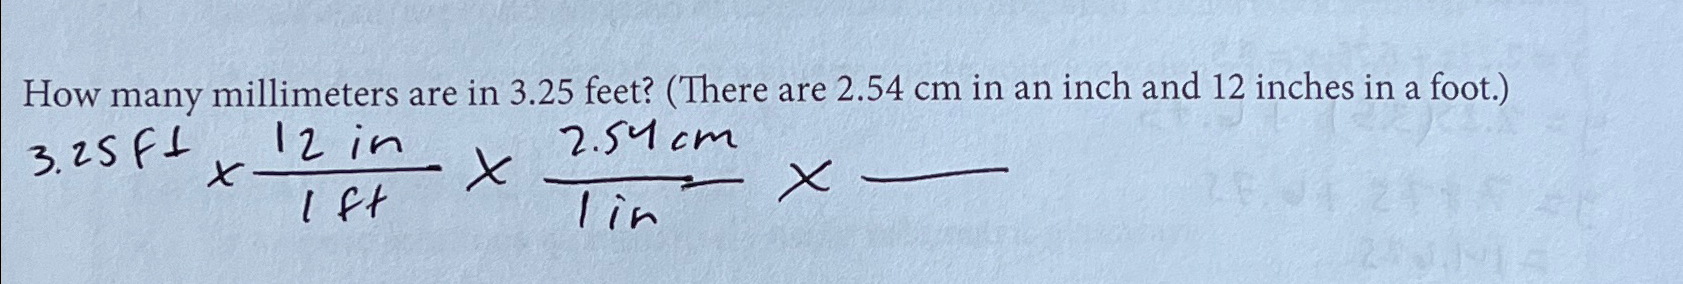 How many millimeters are in 3.25 feet? (There are 2.54 cm in an inch and 12 inches in a foot.)
3.25 ft × 12 in / 1 ft × 2.54 cm / 1 in × —